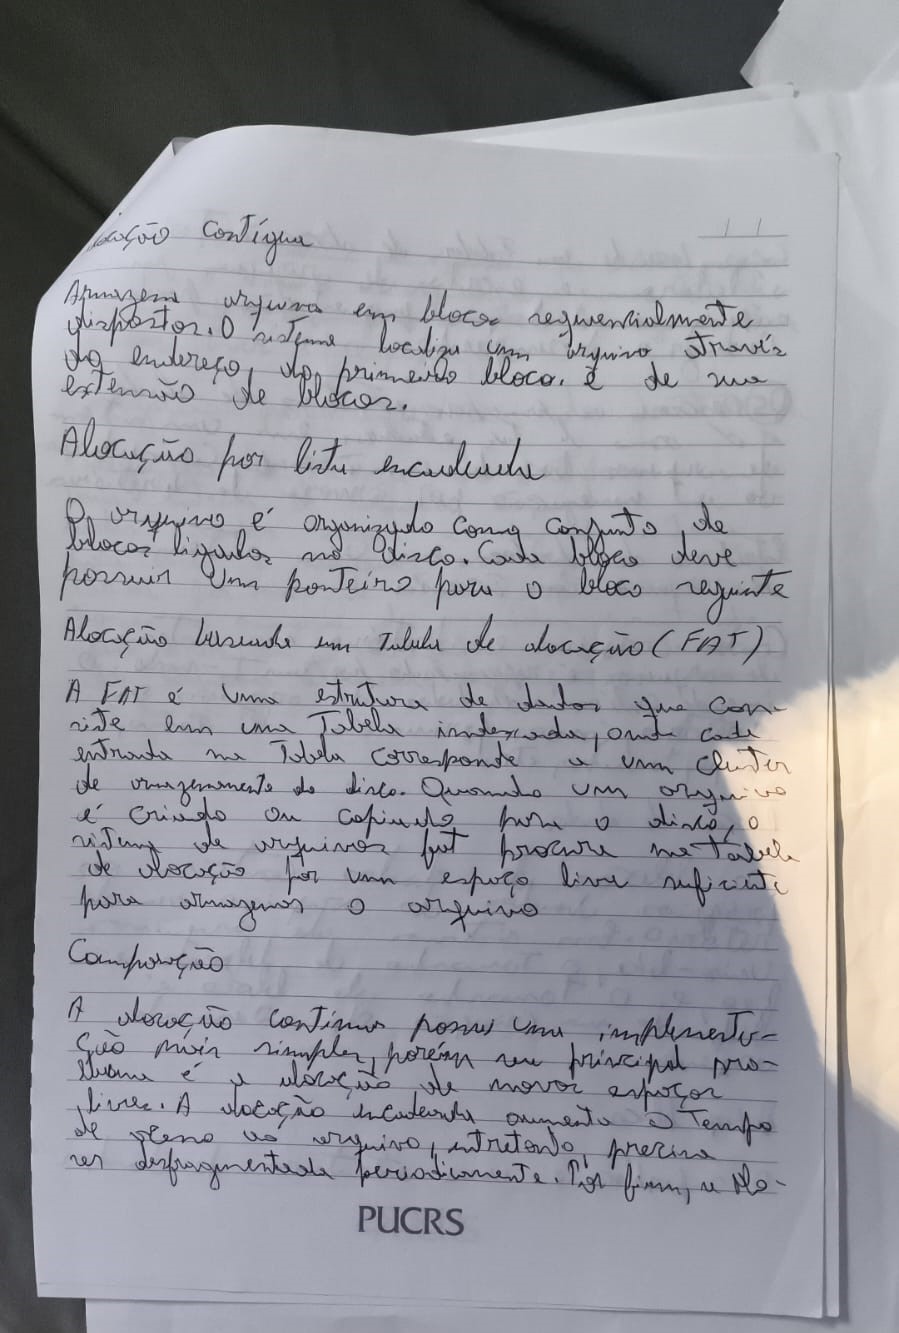 locação contígua
Armazena arquivos em blocos sequencialmente
dispostos. O sistema localiza um arquivo através
do endereço do primeiro bloco. e de sua
extensão de blocos.
Alocação por lista encadeada
O arquivo é organizado como conjunto de
blocos ligados no disco. Cada bloco deve
possuir um ponteiro para o bloco seguinte
Alocação baseada em Tabela de alocação (FAT)
A FAT é uma estrutura de dados que con-
siste em uma Tabela indexada, onde cada
entrada na Tabela corresponde a um cluster
de armazenamento do disco. Quando um arquivo
é criado ou copiado para o disco, o
sistema de arquivos fat procura na Tabela
de alocação por um espaço livre suficiente
para armazenar o arquivo
Comparação
A alocação contínua possui uma implementa-
ção mais simples, porém seu principal pro-
blema é a alocação de novos espaços
livres. A alocação encadeada aumenta o Tempo
de ao arquivo, entretanto, precisa
ser desfragmentada periodicamente. Por fim, a Alo-
PUCRS